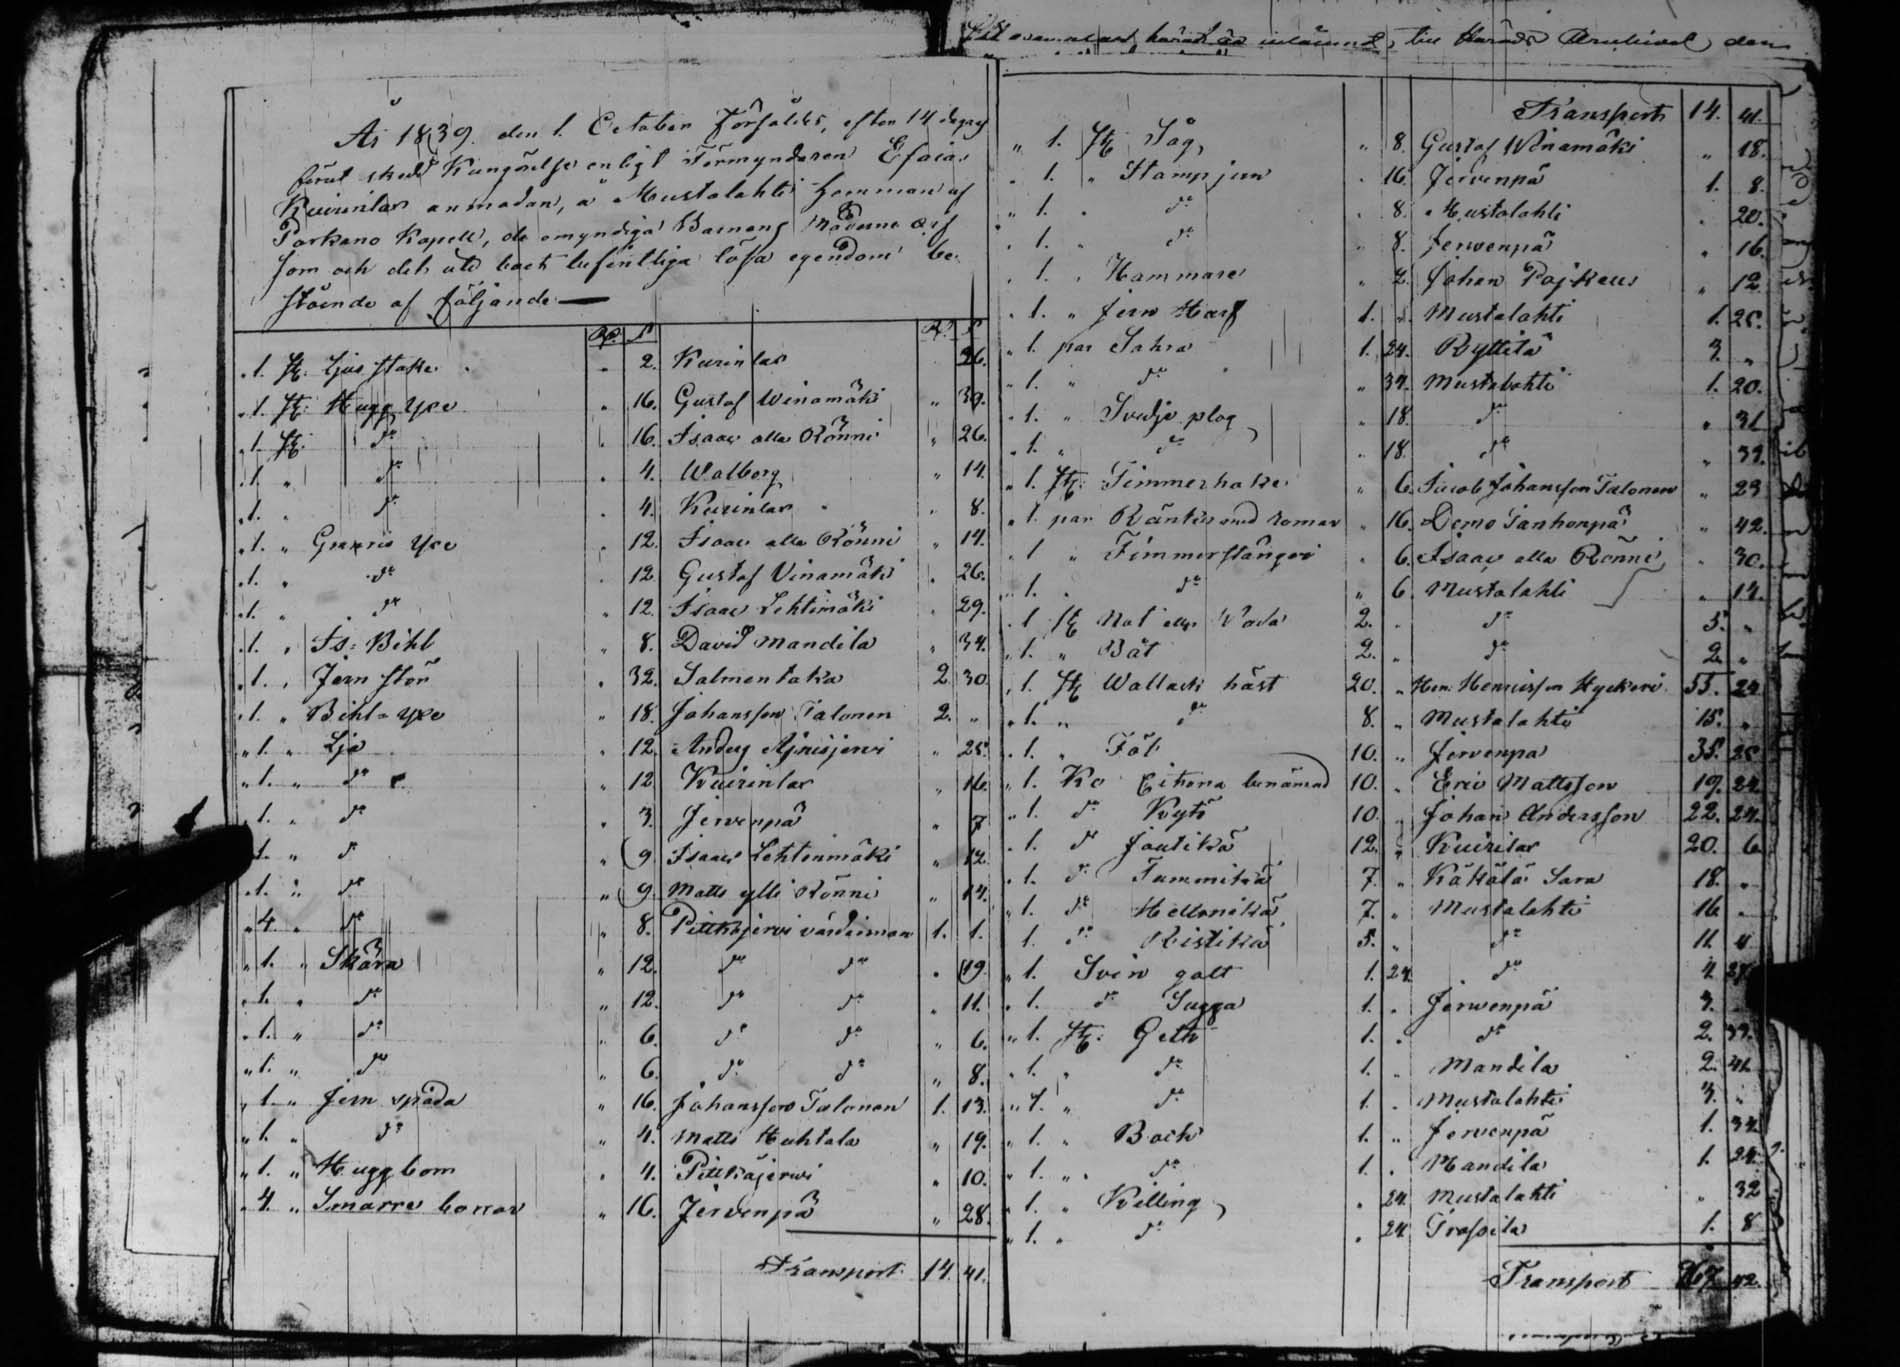 År 1839 den 1. October Försåldes, efter 14 dagar
förut skedd Kungörelse enligt Förmyndaren Esaias
Kuirinlas anmodan, å Mustalahti Hemman af
Parkano Kapell, de omyndiga Barnens Möderne arf
som och det ute boet befintliga lösa egendom be-
stående af följande
1. st. Ljus stake " 2. Kuirinlas 26.
1. st. Hugg Yxe " 16. Gustaf Winamäki " 39.
1. st. do " 16. Isaac alla Rönni " 26.
1. " do " 4. Walborg " 14.
1. " do " 4. Kuirinlas " 8.
1. " Yxe " 12. Isaac alla Rönni " 14.
1. " do " 12. Gustaf Vinamäki " 26.
1. " do " 12. Isaac Lehtimäki " 29.
1. " Is-Bihl " 8. David Mandila " 34.
1. " Jern stör " 32. Salmentaka 2. 30.
1. " Bihl-Yxe " 18. Johansson Talonen 2. "
1. " Lja " 12. Anders " 25.
1. " do " 12 Kuirinlas " 16.
1. " do " 3. Jervenpä " 7
1. " do " 9. Isaac Lehtenmäki " 12.
1. " do " 9. Matts ylli Rönni " 14.
4 " do " 8. Pitkäjervi värdinnan 1. 1.
1. " Skära " 12. do do " 19.
1. " do " 12. do do " 11.
1. " do " 6. do do " 6.
1. " do " 6. do do " 8.
1. " Jern spada " 16. Johansson Talonen 1. 13.
1. " do " 4. Matts Huhtala " 19.
1. " Hugg bom " 4. Pitkäjerwi " 10.
4. " Smärre borrar " 16. Jervenpä " 28.
Transport 14. 41.
till Härads Archivet den
Transport 14. 41.
1. st. Såg " 8. Gustaf Winamäki " 18.
1. " Stampjern " 16. Jervenpä 1. 8.
1. " do " 8. Mustalahti " 20.
1. " do " 8. Jervenpä " 16.
1. " Hammare " 2. Johan " 12
1. " Jern Harf 1. " Mustalahti 1. 25.
1. par Sahra 1. 24. Ryttilä 3. "
1. " do " 34. Mustalahti 1. 20.
1. " Svedje plog " 18. do " 31
1. " do " 18. do " 39.
1. st. Timmerhake " 6. Jacob Johansson Talonen " 23
1. par Räntis med Remar " 16. " 42.
1 " Timmerstänger " 6. Isaac alla Rönni " 30.
1. " do " 6 Mustalahti " 14.
1 st Not eller Wada 2. " do 5. "
1. " Båt 2. " do 2. "
1. st Wallack häst 20. " Hen: Henricsson 55. 24
1. " do 8. " Mustalahti 15. "
1. " Föl 10. " Jervenpä 35. 25
1. Ko Eikena benämnd 10. " Eric Mattsson 19. 24
1. do Kytö 10. " Johan Andersson 22. 24.
1. do Joutikä 12. " Kuirilas 20. 6
1. do Tummikä 7. " Käkälä Sara 18. "
1. do Hellunikä 7. " Mustalahti 16 "
1. do Ristikä 5. " do 11.
1. Svin galt 1. 24 do 4.
1. do Sugga 1. " Jerwenpä 3.
1. st. Geth 1. " do 2. 39.
1. " do 1. " Mandila 2. 41
1. " do 1. " Mustalahti 3. "
1. " Bock 1. " Jervenpä 1. 34
1. " do 1. " Mandila 1. 24
1. " Killing " 24. Mustalahti " 32
1. " do " 24 1. 8
Transport 42.